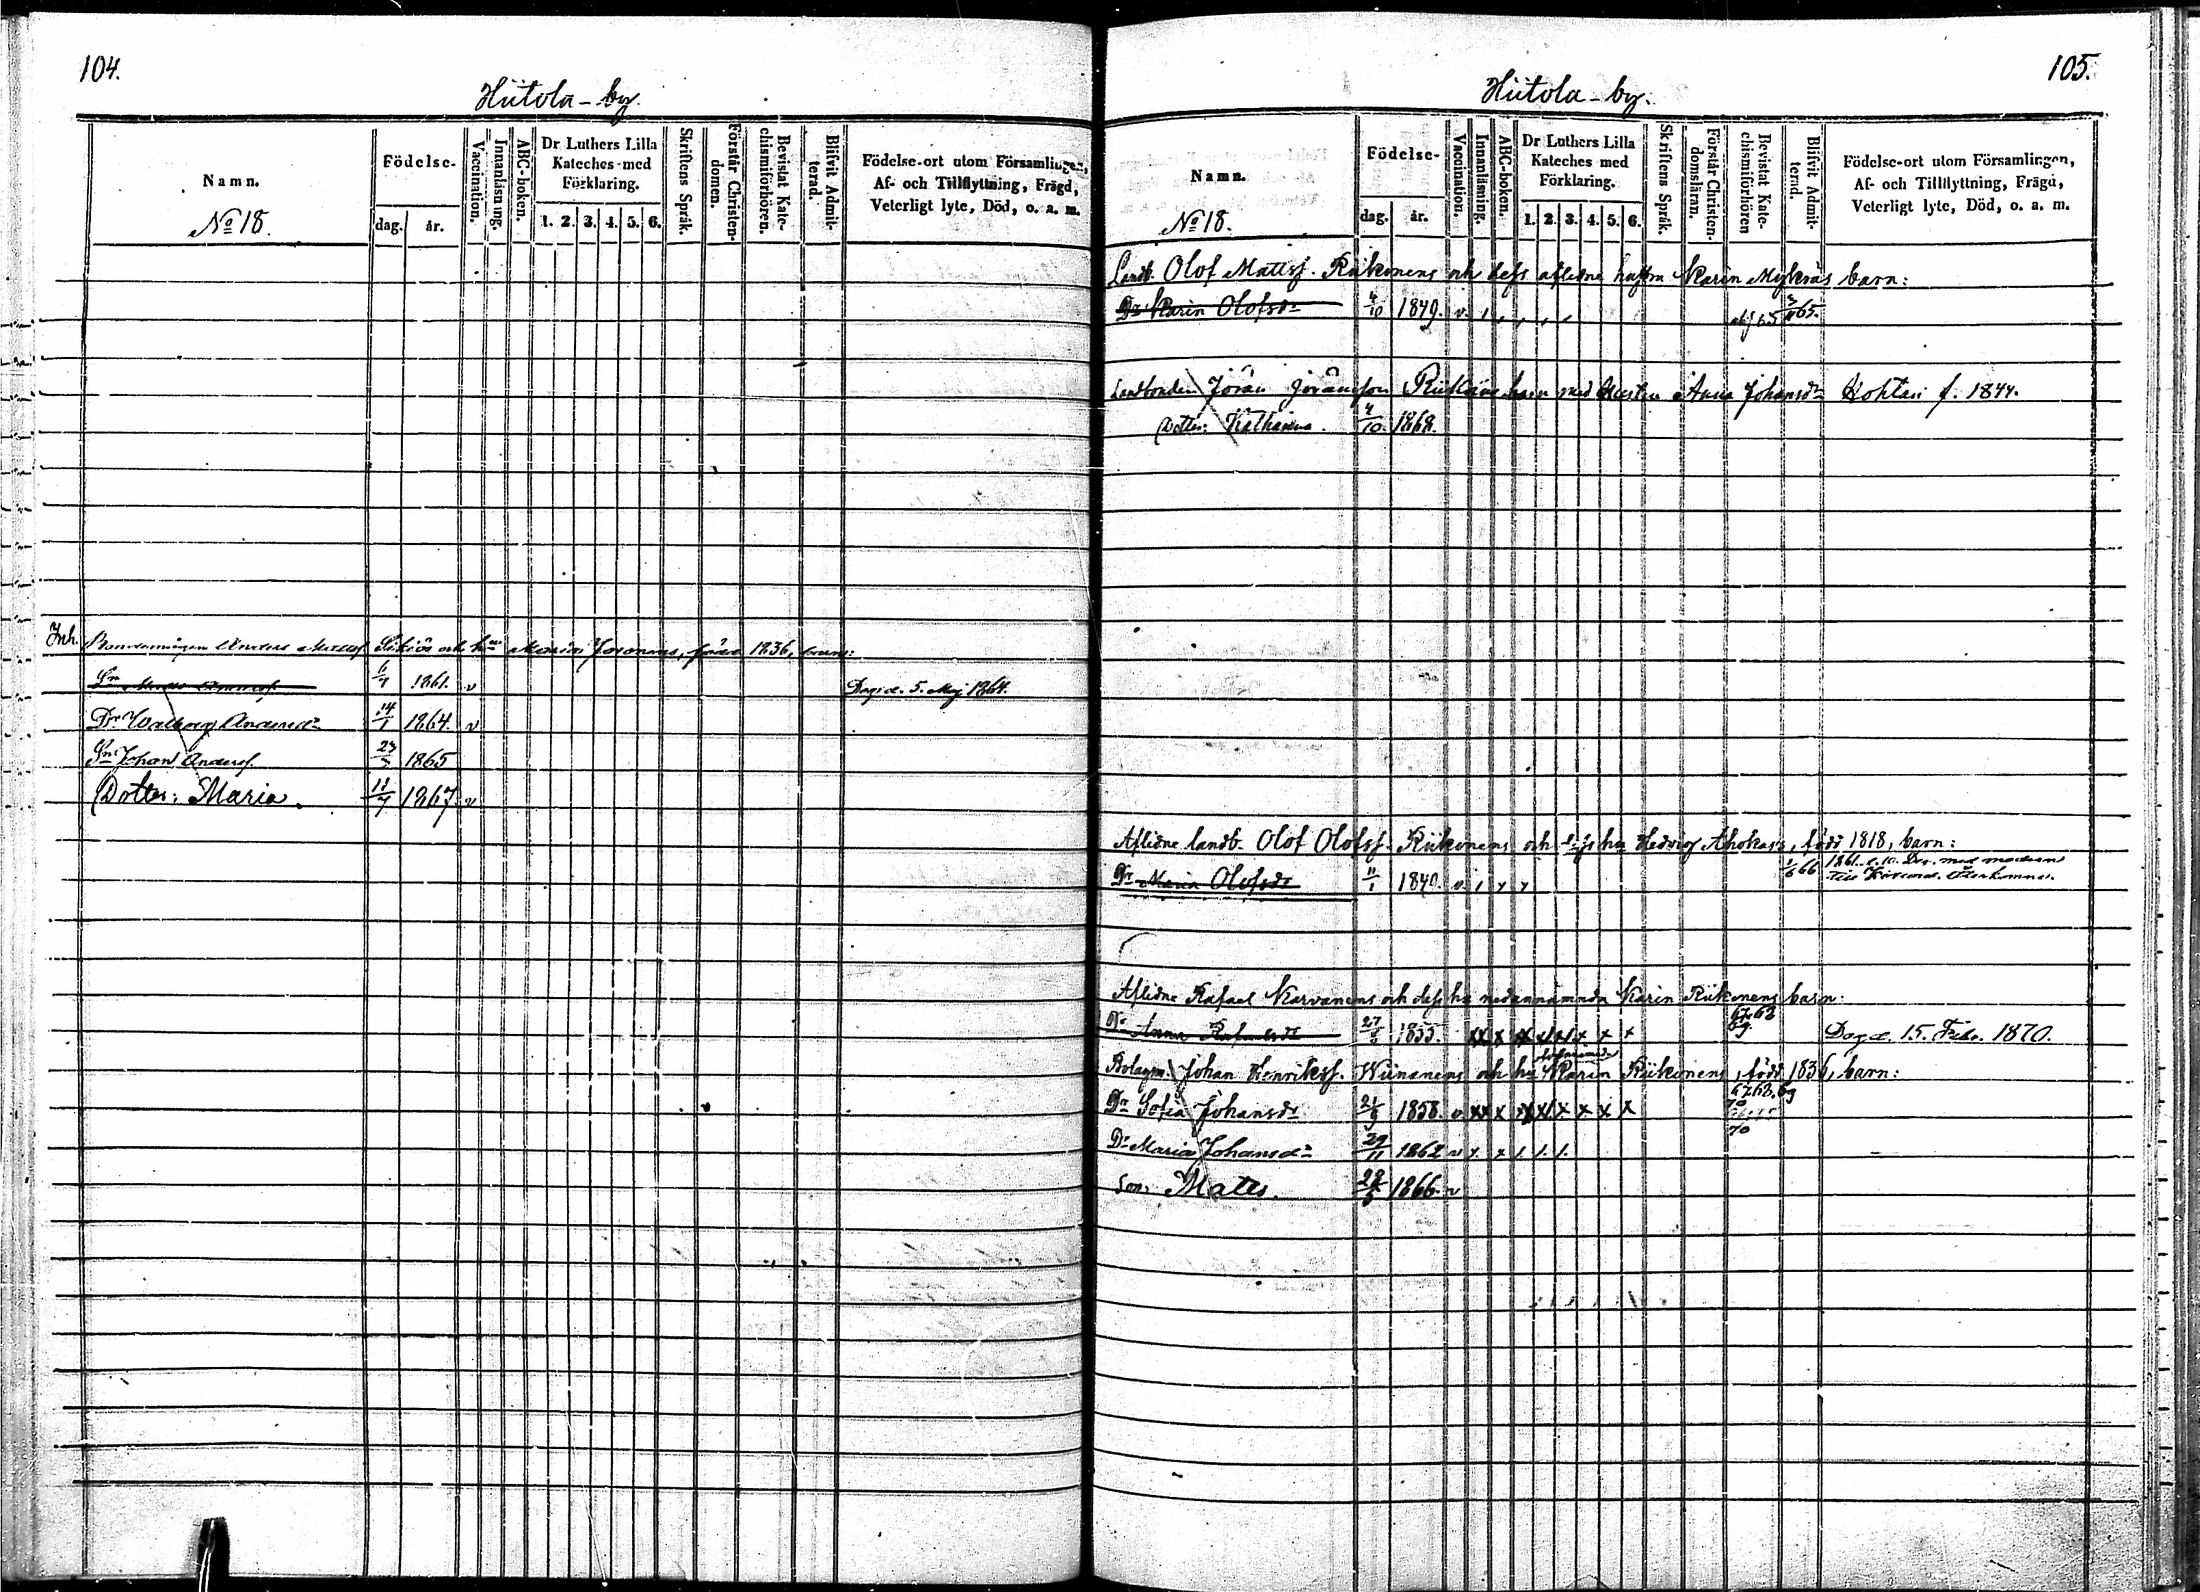 104.
Hiitola-by.
Namn.
No 18.
Födelse-
dag. år.
Vaccination.
Innanläsning.
ABC-boken.
Dr Luthers Lilla
Kateches med
Förklaring.
1. 2. 3. 4. 5. 6.
Skriftens Språk.
Förstår Christen-
domen.
Bevistat Kate-
chismiförhören.
Blifvit Admit-
terad.
Födelse-ort utom Församlingen,
Af- och Tillflyttning, Frägd,
Veterligt lyte, Död, o. a. m.
Inh.
Anders och Maria född 1836, barn:
Sn 6/7 1861. v Dog d. 5. Maj 1864.
Dr Walborg Andersdr 14/1 1864. v
Sn Johan Anderss. 1865
Dotter: Maria. 11/7 1867. v
105.
Hiitola-by.
Namn.
No 18.
Födelse-
dag. år.
Vaccination.
Innanläsning.
ABC-boken.
Dr Luthers Lilla
Kateches med
Förklaring.
1. 2. 3. 4. 5. 6.
Skriftens Språk.
Förstår Christen-
domsläran.
Bevistat Kate-
chismiförhören
Blifvit Admit-
terad.
Födelse-ort utom Församlingen,
Af- och Tillflyttning, Frägd,
Veterligt lyte, Död, o. a. m.
Landb. Olof Mattss. Riikonens och dess aflidne hustru Karin Mykräs barn:
Dr Karin Olofsdr 4/10 1849. v. 65.
Landbonden Jöran Jöransson Riikonen med Anna Johansdr Kohtai f. 1844.
Dotter: Katharina. 4/10. 1868.
Aflidne landb. Olof Olofss. Riikonens och hu Hedvig Ahokas's, född 1818, barn:
Dr Maria Olofsdr 11/1 1840. v. 66 1861. d. 10. Dec. med modren
till Återkommen.
Aflidne Rafael Karvanens och dess hu nedannämnda Karin Riikonens barn:
Dr Anna Rafaelsdr 1855. x x x x x x 67.68 69. Dog d. 15. Febr. 1870.
Bolagsm. Johan Henrikss. Wiinanens och hu Karin Riikonens, född 1836, barn:
Dr Sofia Johansdr 1858. v x x x x x x x 67.68.69 70
Dr Maria Johansdr 29/11 1862 v x. x 1. 1. 1. 70
Son: Matts. 1866. v